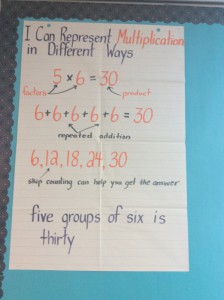 I Can Represent Multiplication
in Different Ways
5 x 6 = 30
factors product
6+6+6+6+6 = 30
repeated addition
6, 12, 18, 24, 30
skip counting can help you get the answer
five groups of six is
thirty